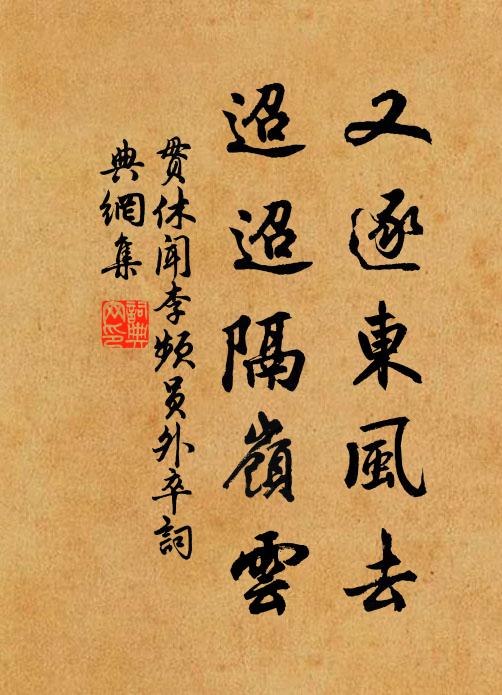 又逐東風去
迢迢隔嶺雲
貫休聞李頻員外卒詞
典網集
詞典
网印